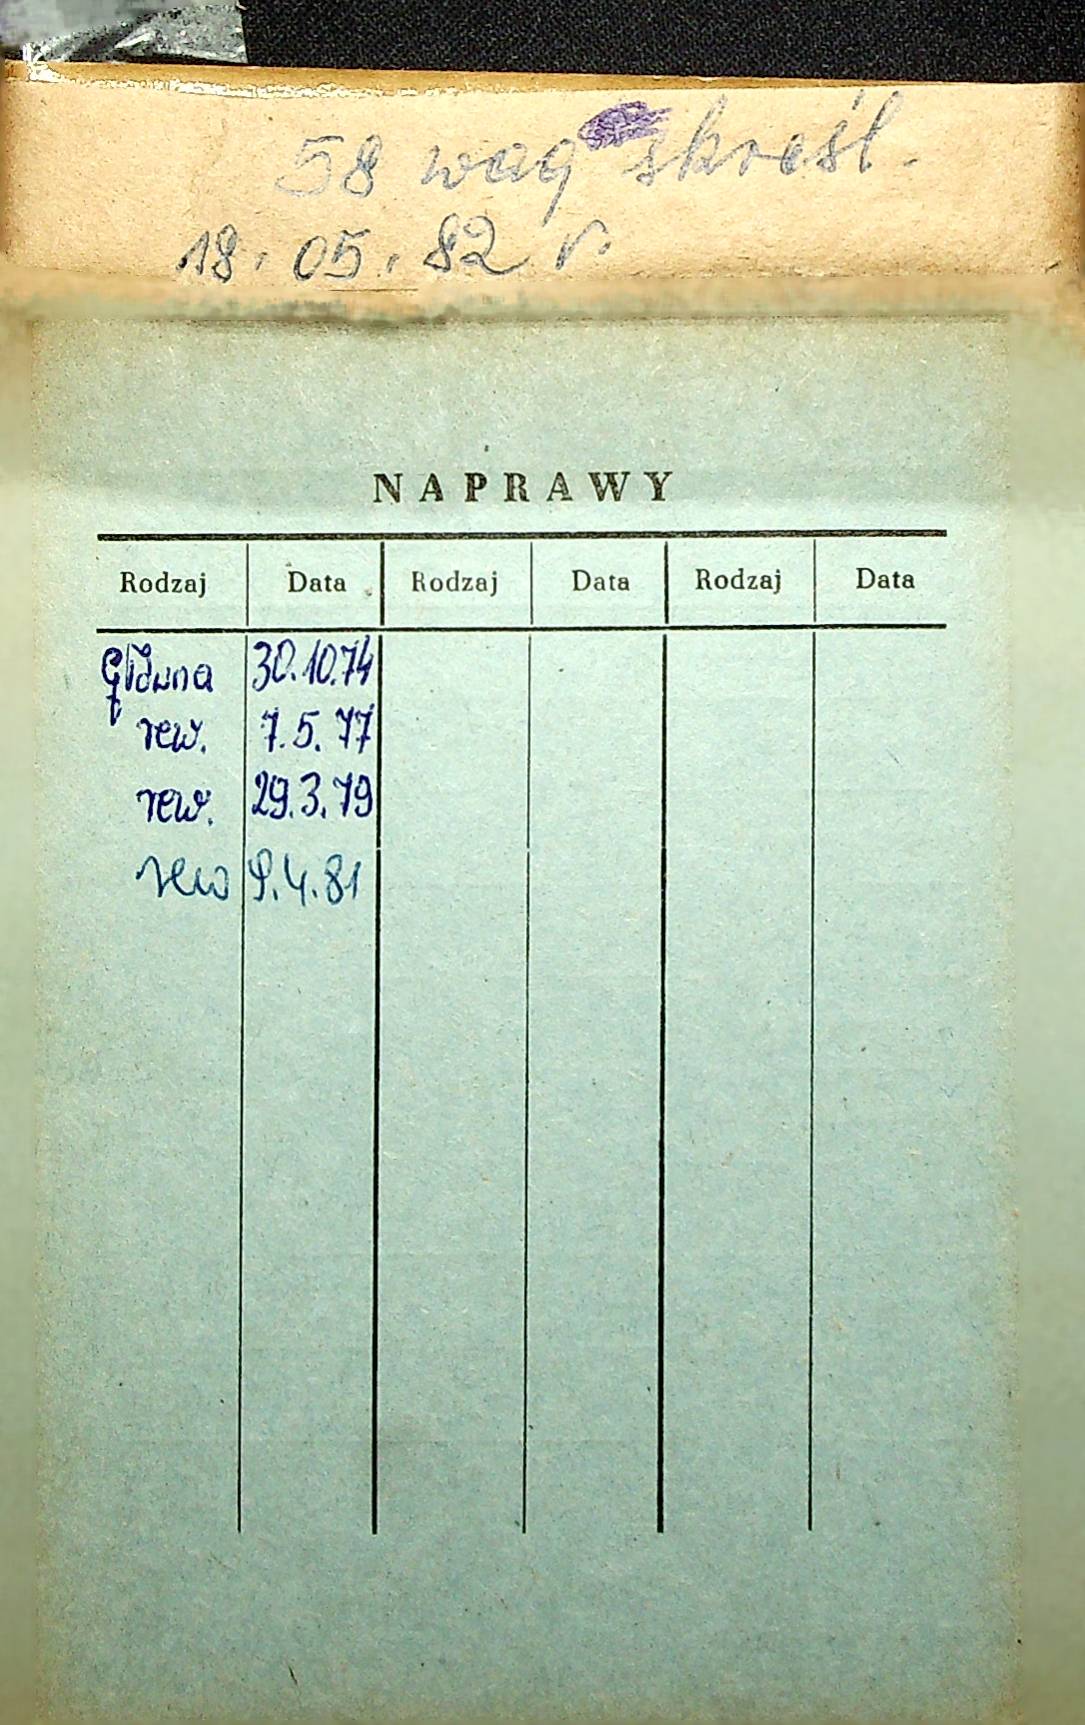 58 wag skreśl.
18.05.82 r.
NAPRAWY
Rodzaj Data Rodzaj Data Rodzaj Data
Główna 30.10.74
rew. 7.5.77
rew. 29.3.79
rew 9.4.81